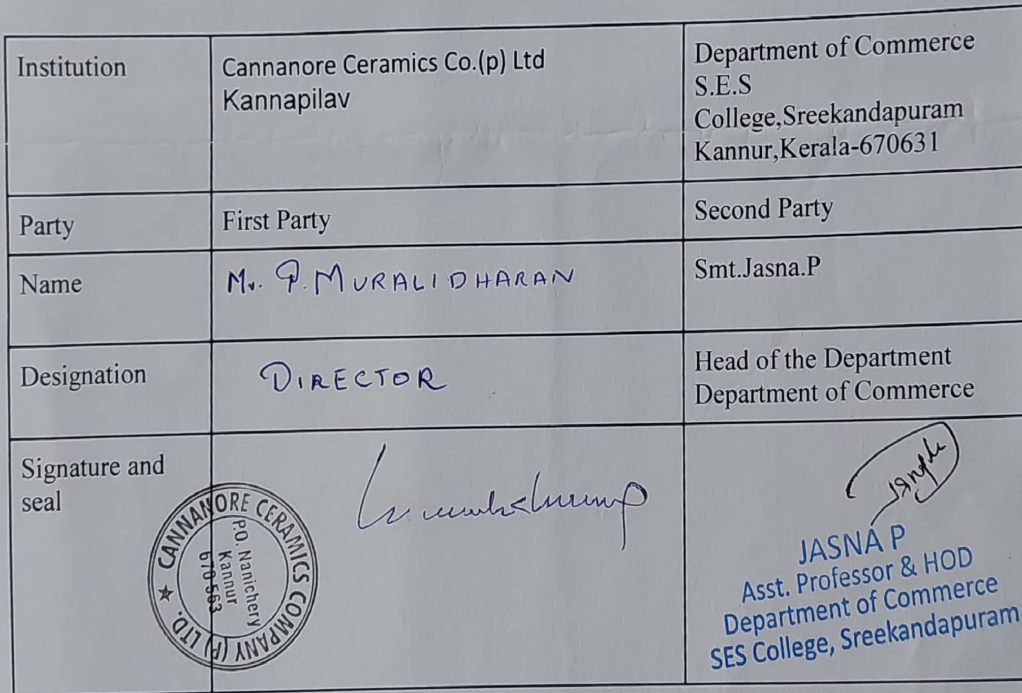 Institution
Cannanore Ceramics Co.(p) Ltd
Kannapilav
Department of Commerce
S.E.S
College,Sreekandapuram
Kannur,Kerala-670631
Party
First Party
Second Party
Name
Mr. P. MURALIDHARAN
Smt.Jasna.P
Designation
DIRECTOR
Head of the Department
Department of Commerce
Signature and
seal
CANNANORE CERAMICS COMPANY (P) LTD. ★
P.O. Nanichery
Kannur
670 563
JASNA P
Asst. Professor & HOD
Department of Commerce
SES College, Sreekandapuram